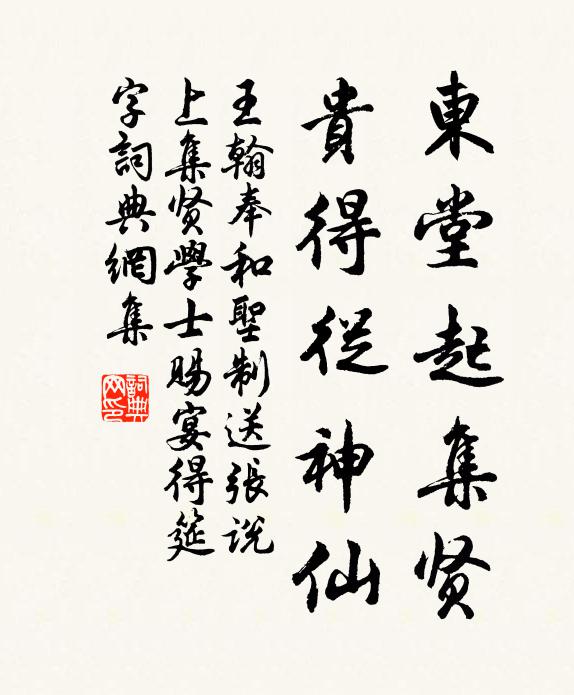 東堂起集贤
貴得從神仙
王翰奉和聖制送張说
上集贤學士賜宴得筵
字詞典網集
詞典网印